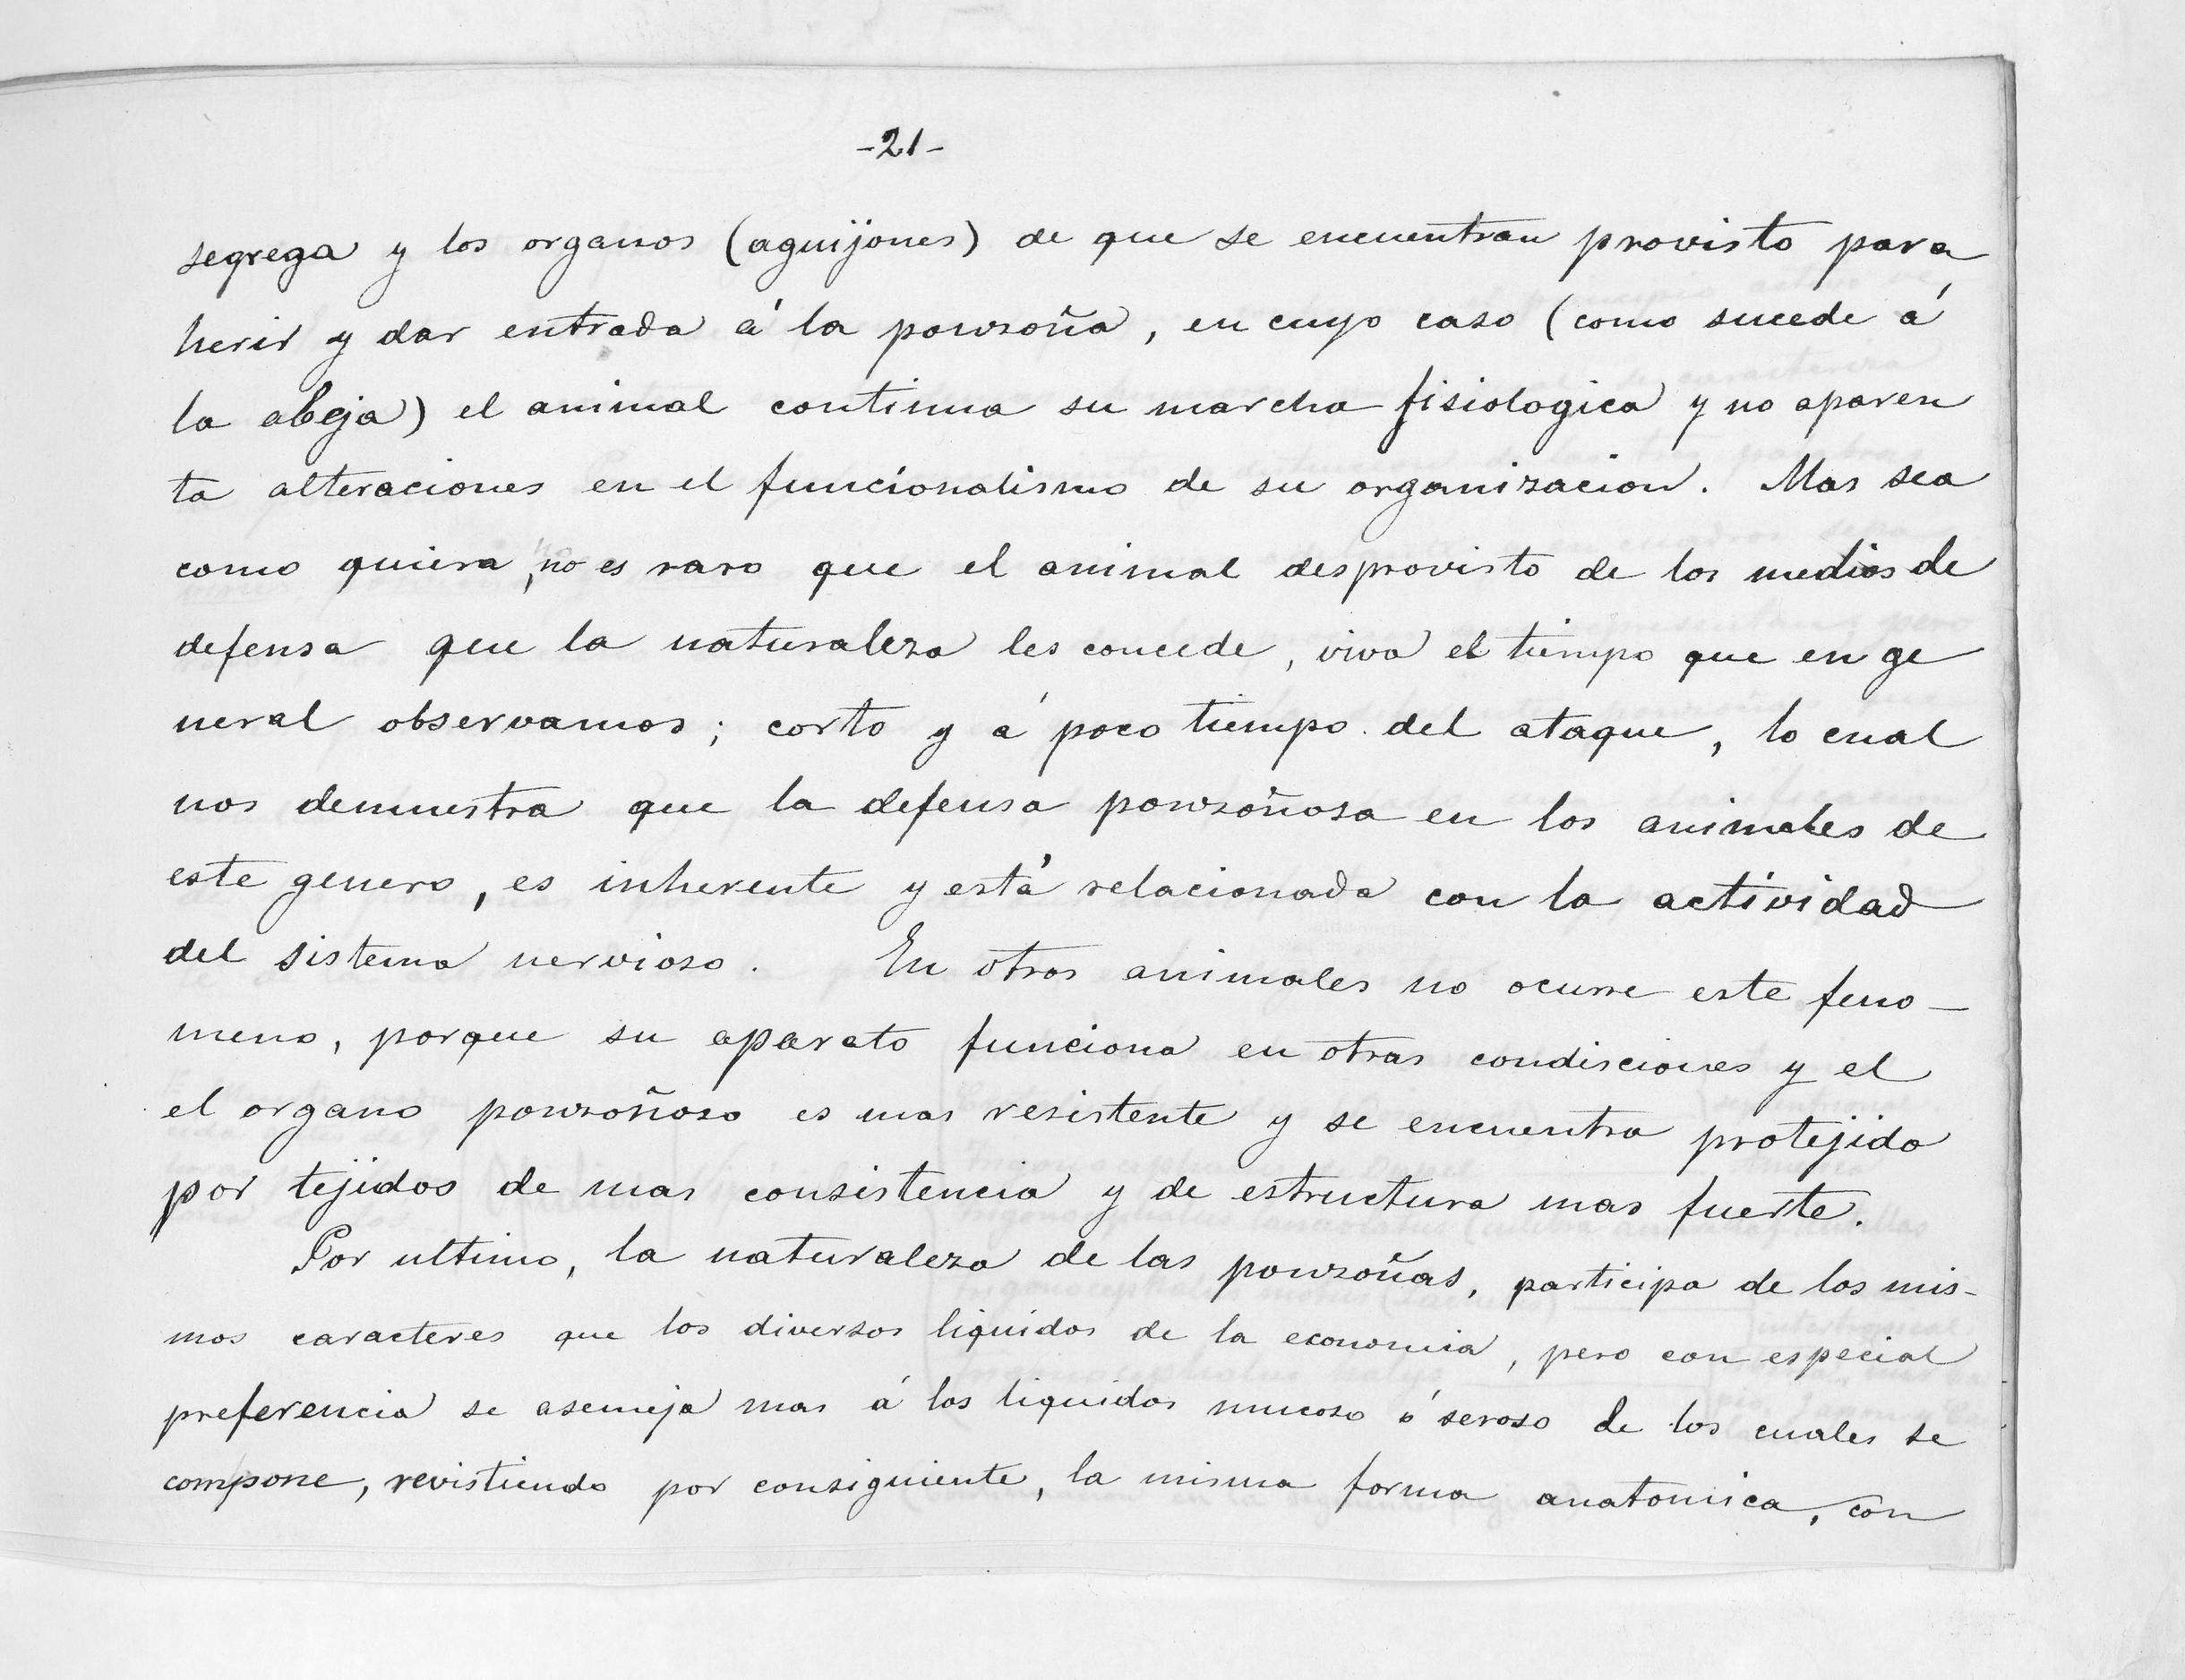 -21-
segrega y los organos (aguijones) de que se encuentran provisto para
herir y dar entrada á la ponzoña, en cuyo caso (como sucede á
la abeja) el animal continua su marcha fisiologica y no aparen
ta alteraciones en el funcionalismo de su organizacion. Mas sea
como quiera, no es raro que el animal desprovisto de los medios de
defensa que la naturaleza les concede, viva el tiempo que en ge
neral observamos; corto y á poco tiempo del ataque, lo cual
nos demuestra que la defensa ponzoñosa en los animales de
este genero, es inherente y está relacionada con la actividad
del sistema nervioso. En otros animales no ocurre este feno-
meno, porque su aparato funciona en otras condisciones y el
el organo ponzoñoso es mas resistente y se encuentra protejido
por tejidos de mas consistencia y de estructura mas fuerte.
Por ultimo, la naturaleza de las ponzoñas, participa de los mis-
mos caracteres que los diversos liquidos de la economia, pero con especial
preferencia se asemeja mas á los liquidos mucoso ó seroso de los cuales se
compone, revistiendo por consiguiente, la misma forma anatomica, con